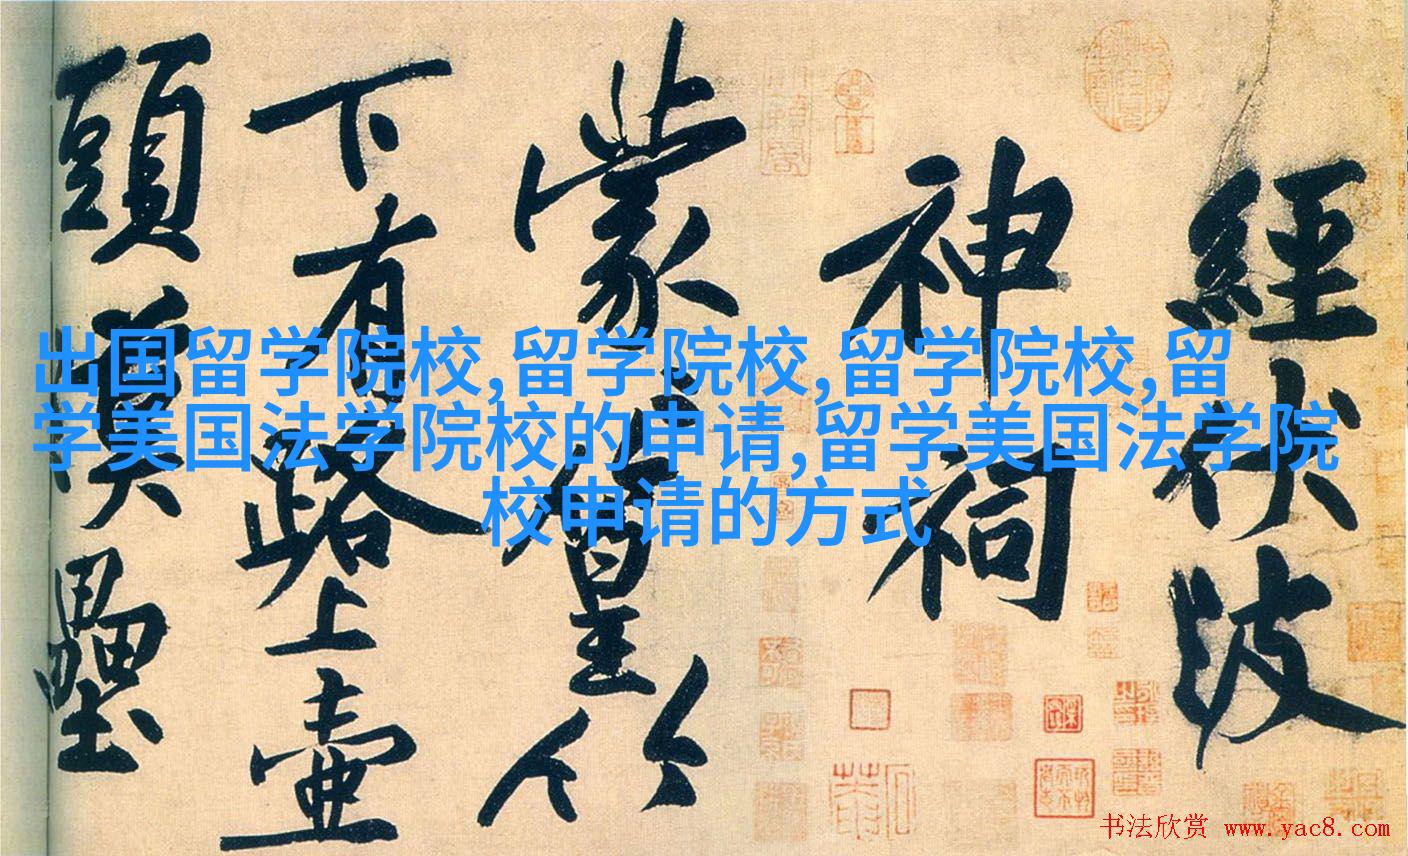 經伏波
神祠
蒙篁竹
下有路上壺
頭漢壘
出国留学院校,留学院校,留学院校,留
学美国法学院校的申请,留学美国法学院
校申请的方式
书法欣赏 www.yac8.com